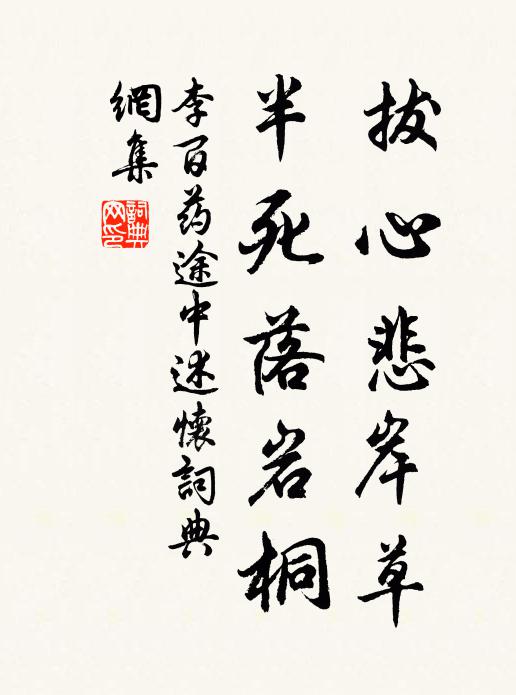 拔心悲岸草
半死落岩桐
李百药途中述懷詞典
網集
詞典
网印